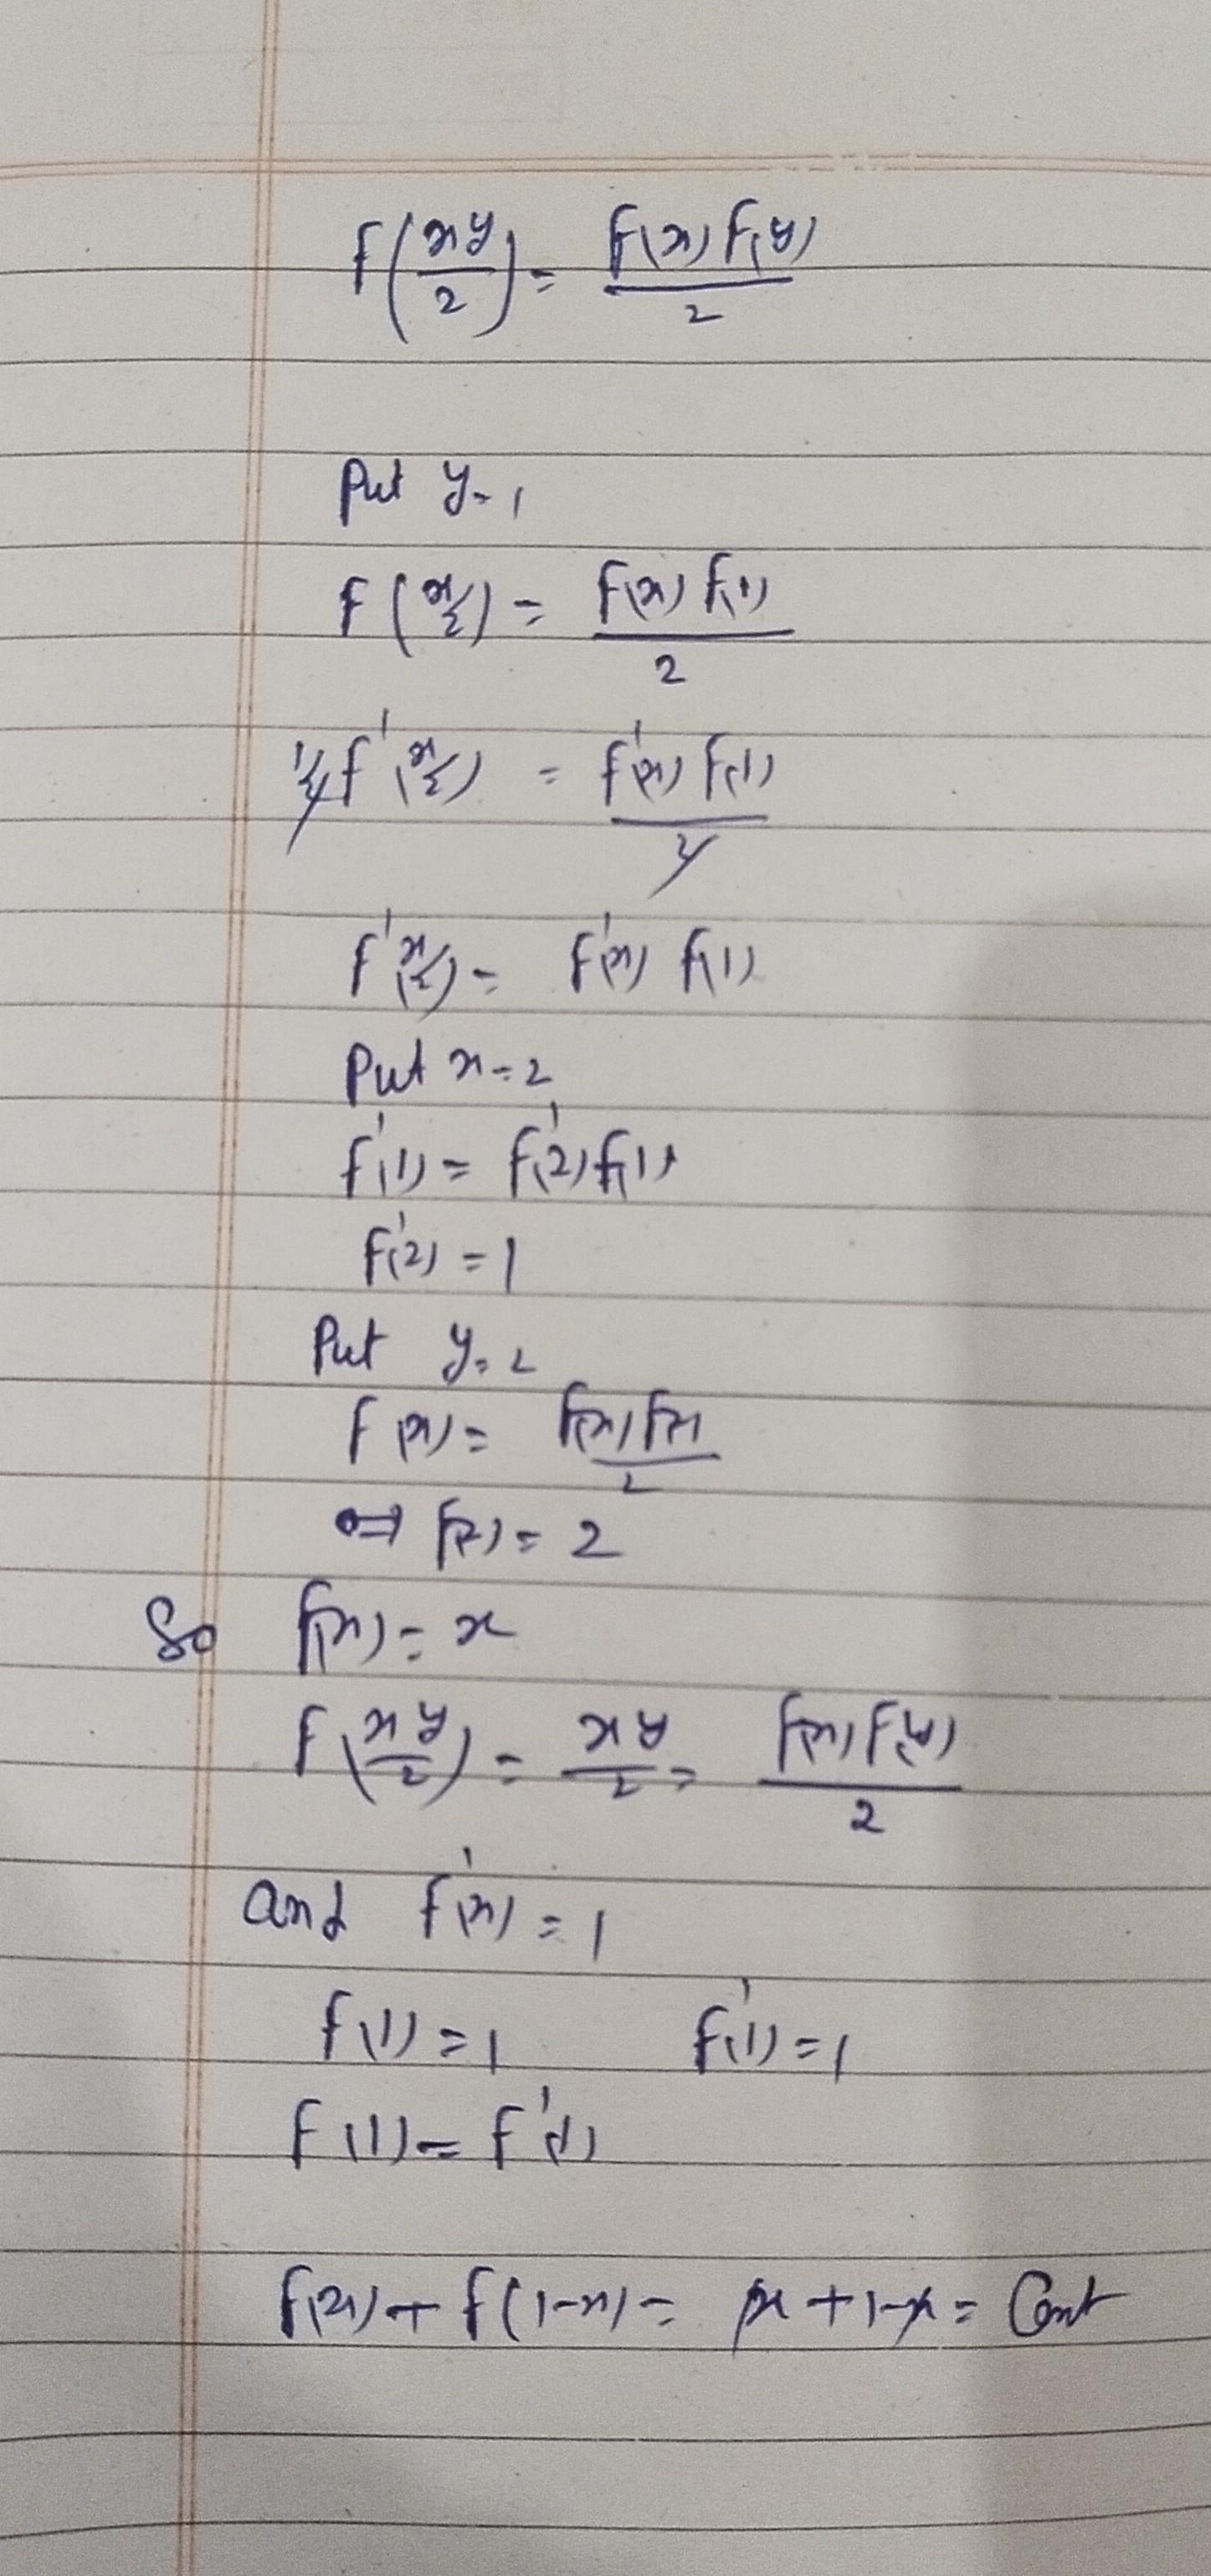 f(xy/2) = f(x) f(y)/2
Put y=1
f(x/2) = f(x) f(1)/2
1/2 f'(x/2) = f'(x) f(1)/2
f'(x/2) = f'(x) f(1)
Put x=2
f'(1) = f'(2) f(1)
f'(2) = 1
Put y=2
f(x) = f(x) f(2)/2
⇒ f(2) = 2
So f(x) = x
f(xy/2) = xy/2 = f(x) f(y)/2
and f'(x) = 1
f(1) = 1 f'(1) = 1
f(1) = f'(1)
f(x) + f(1-x) = x + 1-x = Const